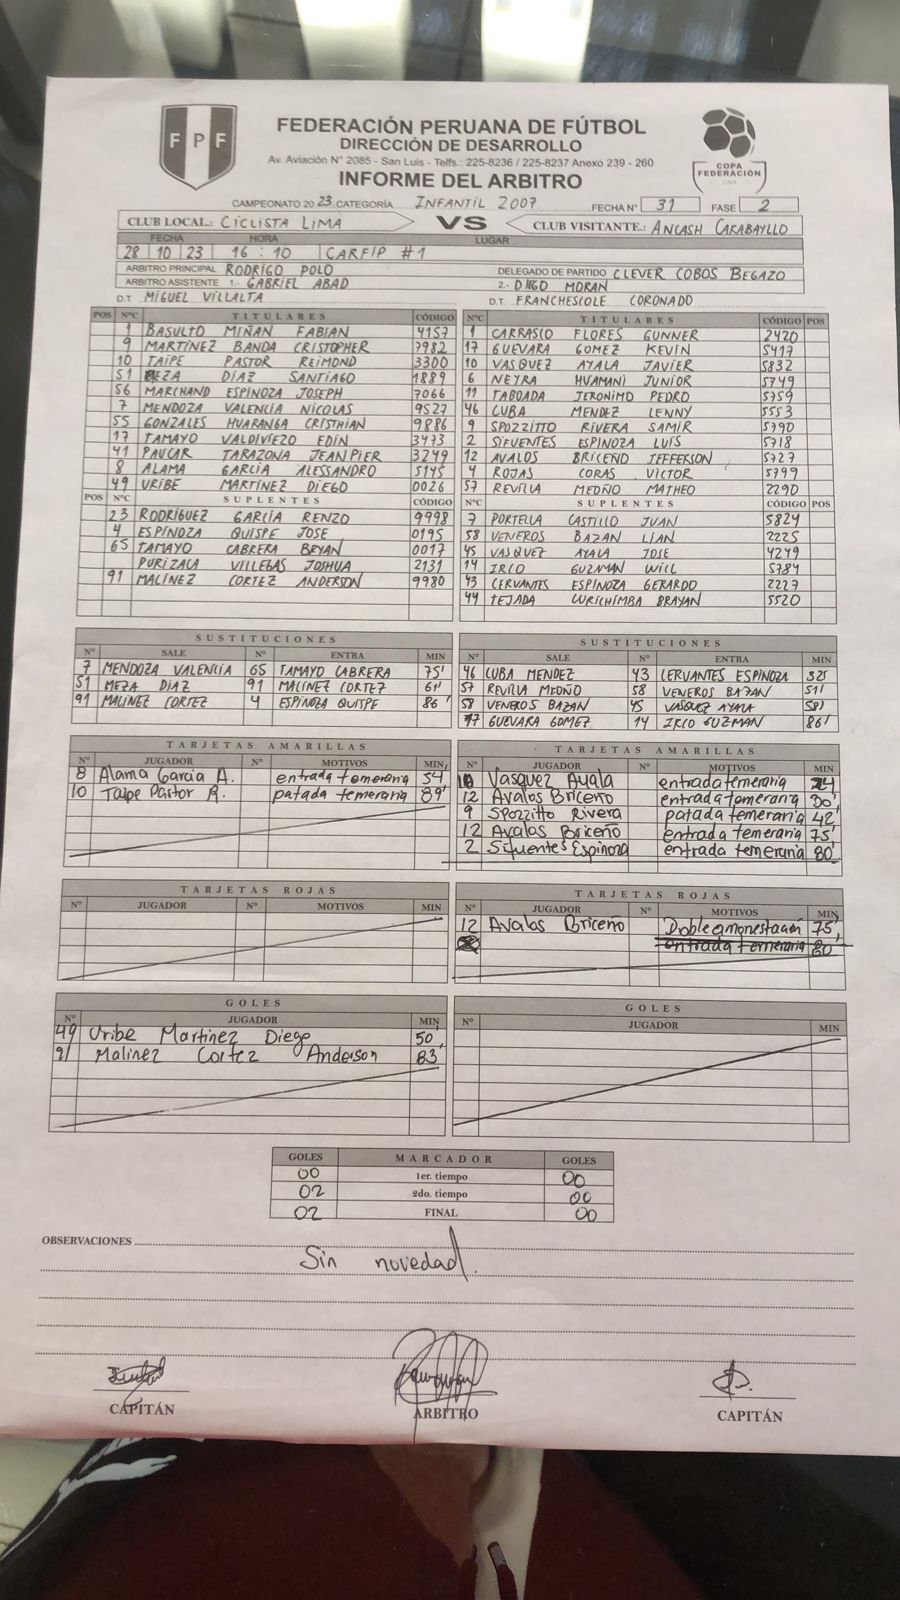 FPF
FEDERACIÓN PERUANA DE FÚTBOL
DIRECCIÓN DE DESARROLLO
Av. Aviación N° 2085 - San Luis - Telfs.: 225-8236 / 225-8237 Anexo 239 - 260
INFORME DEL ARBITRO
COPA FEDERACIÓN
CAMPEONATO 20 23 CATEGORÍA INFANTIL 2007 FECHA N° 31 FASE 2
CLUB LOCAL: CICLISTA LIMA VS CLUB VISITANTE.: ANCASH CARABAYLLO
FECHA HORA LUGAR
28 10 23 16 : 10 CARFIP #1
ARBITRO PRINCIPAL RODRIGO POLO DELEGADO DE PARTIDO CLEVER COBOS BEGAZO
ARBITRO ASISTENTE 1.- GABRIEL ABAD 2.- DIEGO MORAN
D.T. MIGUEL VILLALTA D.T. FRANCHESCOLE CORONADO
POS N°C TITULARES CÓDIGO N°C TITULARES CÓDIGO POS
1 BASULTO MIÑAN FABIAN 4157 1 CARRASCO FLORES GUNNER 2420
9 MARTINEZ BANDA CRISTOPHER 7982 17 GUEVARA GOMEZ KEVIN 5417
10 TAIPE PASTOR REIMOND 3300 10 VASQUEZ AYALA JAVIER 5832
51 MEZA DIAZ SANTIAGO 1889 6 NEYRA HUAMANI JUNIOR 5749
56 MARCHAND ESPINOZA JOSEPH 7066 11 TABOADA JERONIMO PEDRO 5759
7 MENDOZA VALENCIA NICOLAS 9527 46 CUBA MENDEZ LENNY 5553
55 GONZALES HUARANGA CRISTHIAN 9886 9 SPOZZITTO RIVERA SAMIR 5790
17 TAMAYO VALDIVIEZO EDIN 3473 2 SIFUENTES ESPINOZA LUIS 5718
41 PAUCAR TARAZONA JEANPIER 3249 12 AVALOS BRICEÑO JEFFERSON 5727
8 ALAMA GARCIA ALESSANDRO 5145 4 ROJAS CORAS VICTOR 5799
49 URIBE MARTINEZ DIEGO 0026 57 REVILLA MEDÑO MATHEO 2290
POS N°C SUPLENTES CÓDIGO N°C SUPLENTES CÓDIGO POS
23 RODRIGUEZ GARCIA RENZO 9998 7 PORTELLA CASTILLO JUAN 5824
4 ESPINOZA QUISPE JOSE 0195 58 VENEROS BAZAN LIAN 2225
65 TAMAYO CABRERA BRYAN 0017 45 VASQUEZ AYALA JOSE 4249
PURIZALA VILLEGAS JOSHUA 2131 14 IRCO GUZMAN WILL 5784
91 MALINEZ CORTEZ ANDERSON 9980 43 CERVANTES ESPINOZA GERARDO 2227
44 TEJADA CURICHIMBA BRAYAN 5520
SUSTITUCIONES SUSTITUCIONES
N° SALE N° ENTRA MIN N° SALE N° ENTRA MIN
7 MENDOZA VALENCIA 65 TAMAYO CABRERA 75' 46 CUBA MENDEZ 43 CERVANTES ESPINOZA
51 MEZA DIAZ 91 MALINEZ CORTEZ 61' 57 REVILLA MEDÑO 58 VENEROS BAZAN 51'
91 MALINEZ CORTEZ 4 ESPINOZA QUISPE 86' 58 VENEROS BAZAN 45 VASQUEZ AYALA 58'
17 GUEVARA GOMEZ 14 IRCO GUZMAN 86'
TARJETAS AMARILLAS TARJETAS AMARILLAS
N° JUGADOR N° MOTIVOS MIN. N° JUGADOR N° MOTIVOS MIN
8 Alama Garcia A. entrada temeraria 54' 10 Vasquez Ayala entrada temeraria
10 Taipe Pastor R. patada temeraria 89' 12 Avalos Briceño entrada temeraria 30'
9 Spozzitto Rivera patada temeraria 42'
12 Avalos Briceño entrada temeraria 75'
2 Sifuentes Espinoza entrada temeraria 80'
TARJETAS ROJAS TARJETAS ROJAS
N° JUGADOR N° MOTIVOS MIN N° JUGADOR N° MOTIVOS MIN
12 Avalos Briceño Doble amonestación 75'
entrada temeraria 80'
GOLES GOLES
N° JUGADOR MIN N° JUGADOR MIN
49 Uribe Martinez Diego 50'
91 Malinez Cortez Anderson 83'
GOLES MARCADOR GOLES
00 1er. tiempo 00
02 2do. tiempo 00
02 FINAL 00
OBSERVACIONES
Sin novedad.
CAPITÁN ARBITRO CAPITÁN